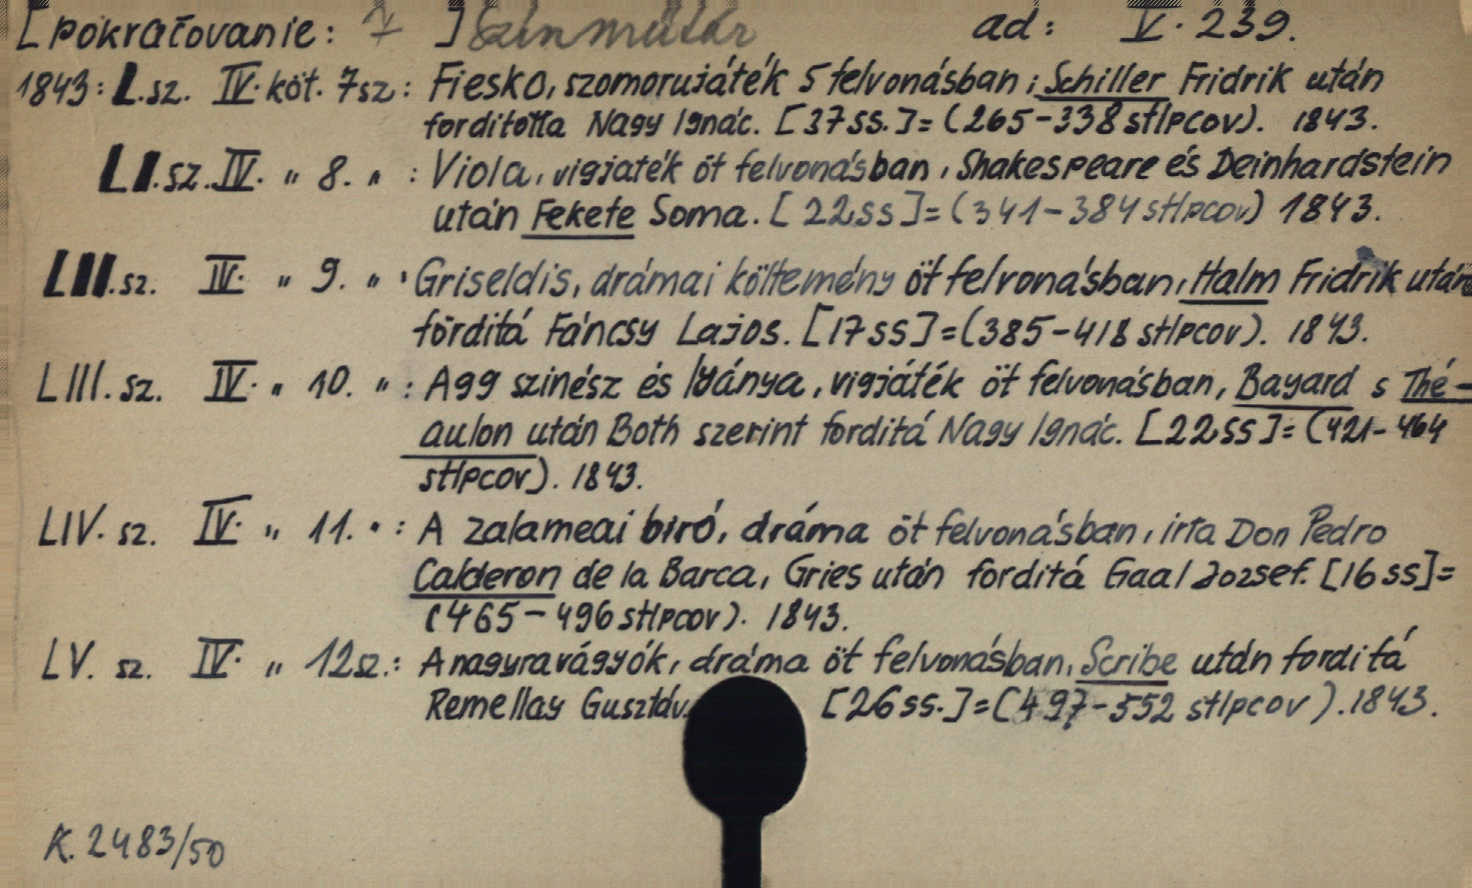 [pokračovanie: 7 ] Szinműtár ad: V. 239.
1843: L. sz. IV. köt. 7 sz: Fiesko, szomorujáték 5 felvonásban, Schiller Fridrik után
forditotta Nagy Ignác. [37 ss.] = (265-338 stĺpcov). 1843.
LI. sz. IV. " 8. " : Viola, vigjaték öt felvonásban, Shakespeare és Deinhardstein
után Fekete Soma. [22 ss] = (341-384 stĺpcov) 1843.
LII. sz. IV. " 9. " : Griseldis, drámai költemény öt felvonásban, Halm Fridrik után
forditá Fáncsy Lajos. [17 ss] = (385-418 stĺpcov). 1843.
LIII. sz. IV. " 10. " : Agg szinész és leánya, vigjáték öt felvonásban, Bayard s Thé-
aulon után Both szerint forditá Nagy Ignác. [22 ss] = (421-464
stĺpcov). 1843.
LIV. sz. IV. " 11. " : A zalameai biró, dráma öt felvonásban, irta Don Pedro
Calderon de la Barca, Gries után forditá Gaal József. [16 ss] =
(465-496 stĺpcov). 1843.
LV. sz. IV. " 12 sz.: A nagyravágyók, dráma öt felvonásban, Scribe után forditá
Remellay Gusztáv. [26 ss.] = (497-552 stĺpcov). 1843.
K. 2483/50